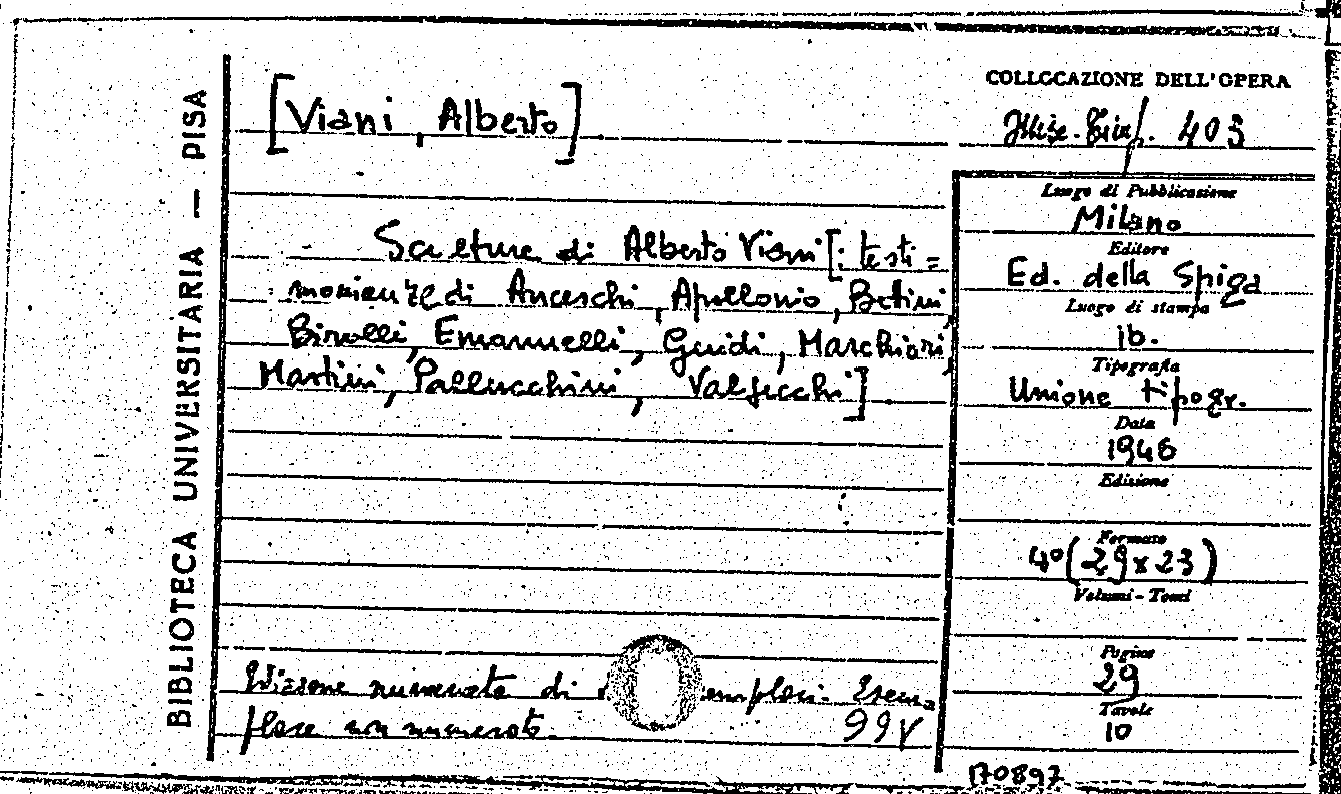 BIBLIOTECA UNIVERSITARIA — PISA
[Viani, Alberto]
Sculture di Alberto Viani [: testi=
monianze di Anceschi, Apollonio, Betini,
Birolli, Emanuelli, Guidi, Marchiori,
Martini, Pallucchini, Valsecchi]
Edizione numerata di emplari. Esem=
plare non numerato.
99V
COLLOCAZIONE DELL'OPERA
403
Luogo di Pubblicazione
Milano
Editore
Ed. della Spiga
Luogo di stampa
ib.
Tipografia
Unione tipogr.
Data
1946
Edizione
Formato
4°(29x23)
Volumi - Tomi
Pagine
29
Tavole
10
170897